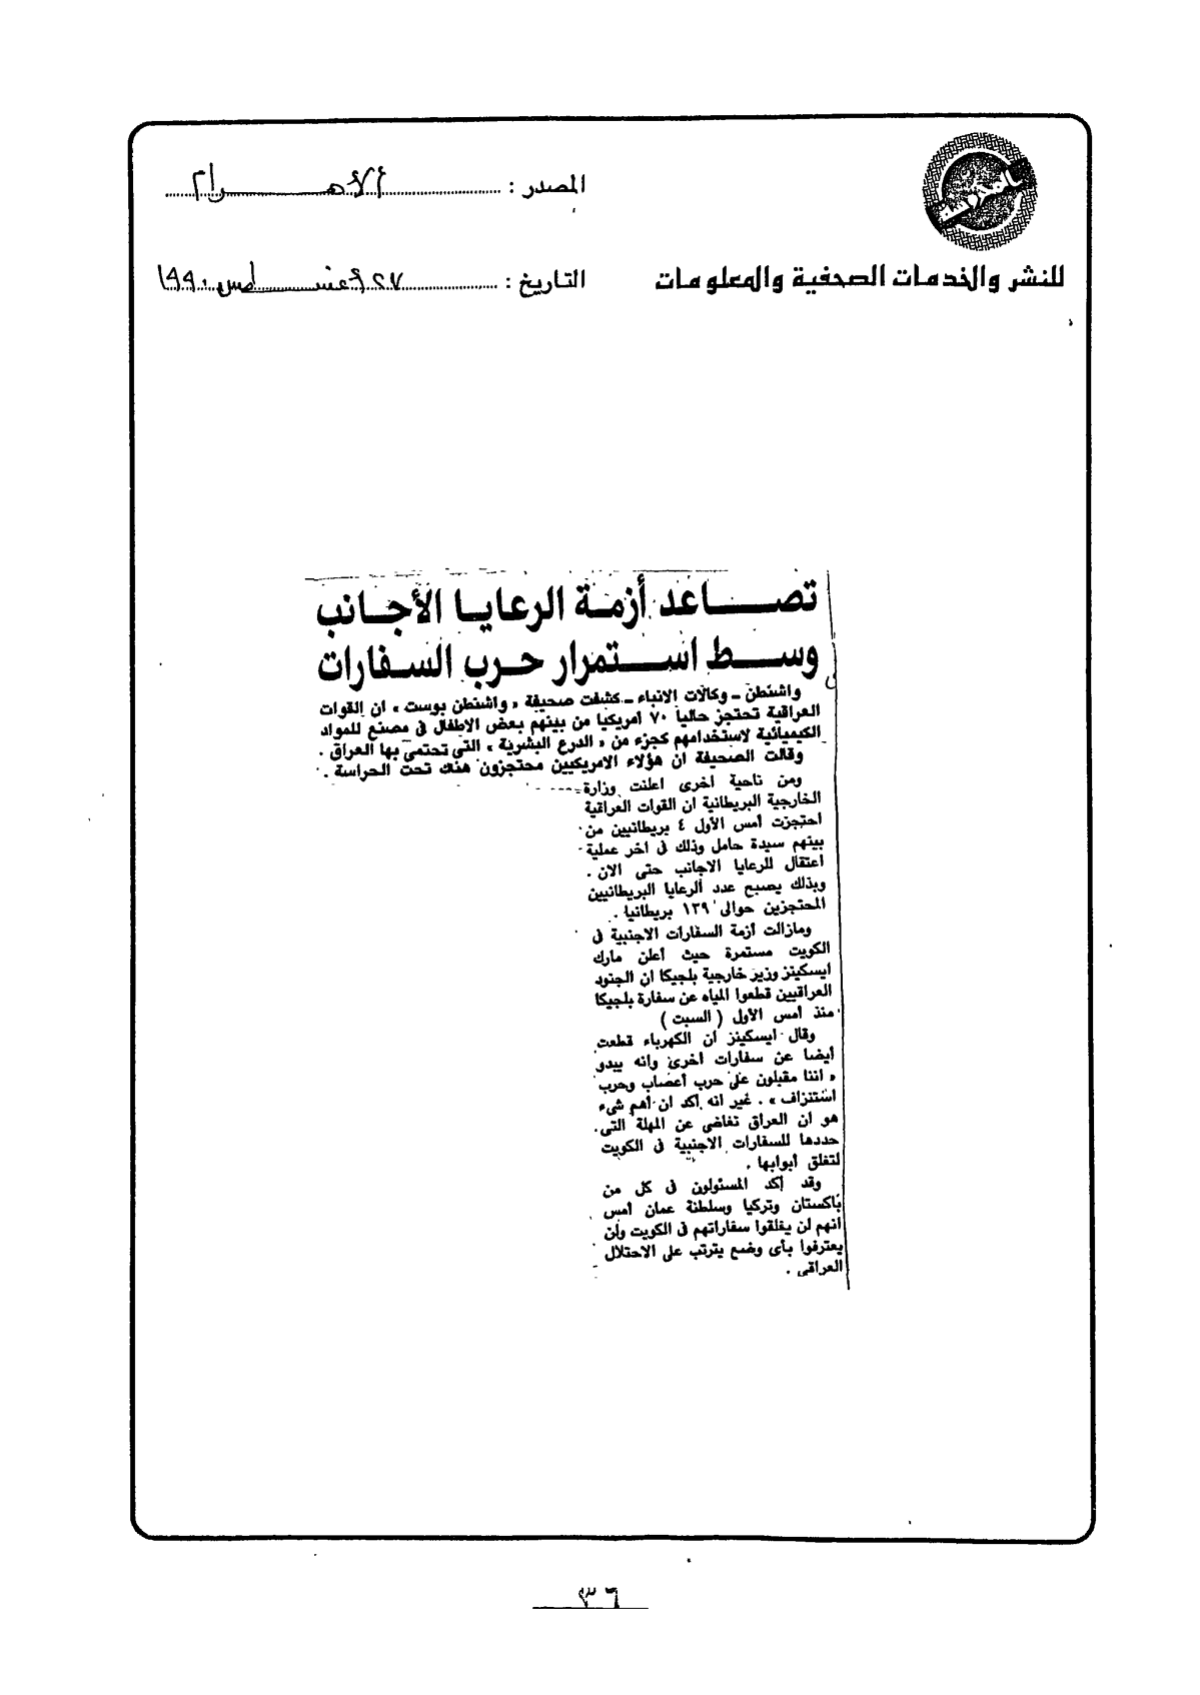 المصدر : الأهرام
للنشر والخدمات الصحفية والمعلومات
التاريخ : ٢٧ أغسطس ١٩٩٠
تصاعد أزمة الرعايا الأجانب
وسط استمرار حرب السفارات
واشنطن ــ وكالات الانباء ــ كشفت صحيفة « واشنطن بوست » ان القوات
العراقية تحتجز حاليا ٧٠ أمريكيا من بينهم بعض الاطفال فى مصنع للمواد
الكيميائية لاستخدامهم كجزء من « الدرع البشرية » التى تحتمى بها العراق .
وقالت الصحيفة ان هؤلاء الامريكيين محتجزون هناك تحت الحراسة .
ومن ناحية اخرى اعلنت وزارة
الخارجية البريطانية ان القوات العراقية
احتجزت أمس الأول ٤ بريطانيين من
بينهم سيدة حامل وذلك فى اخر عملية
اعتقال للرعايا الاجانب حتى الان .
وبذلك يصبح عدد الرعايا البريطانيين
المحتجزين حوالى ١٣٩ بريطانيا .
ومازالت أزمة السفارات الاجنبية فى
الكويت مستمرة حيث أعلن مارك
ايسكينز وزير خارجية بلجيكا ان الجنود
العراقيين قطعوا المياه عن سفارة بلجيكا
منذ أمس الأول ( السبت )
وقال ايسكينز ان الكهرباء قطعت
أيضا عن سفارات اخرى وانه يبدو
« اننا مقبلون على حرب أعصاب وحرب
استنزاف » . غير انه أكد ان أهم شىء
هو ان العراق تغاضى عن المهلة التى
حددها للسفارات الاجنبية فى الكويت
لتغلق أبوابها .
وقد أكد المسئولون فى كل من
باكستان وتركيا وسلطنة عمان أمس
انهم لن يغلقوا سفاراتهم فى الكويت ولن
يعترفوا بأى وضع يترتب على الاحتلال
العراقى .
٣٦